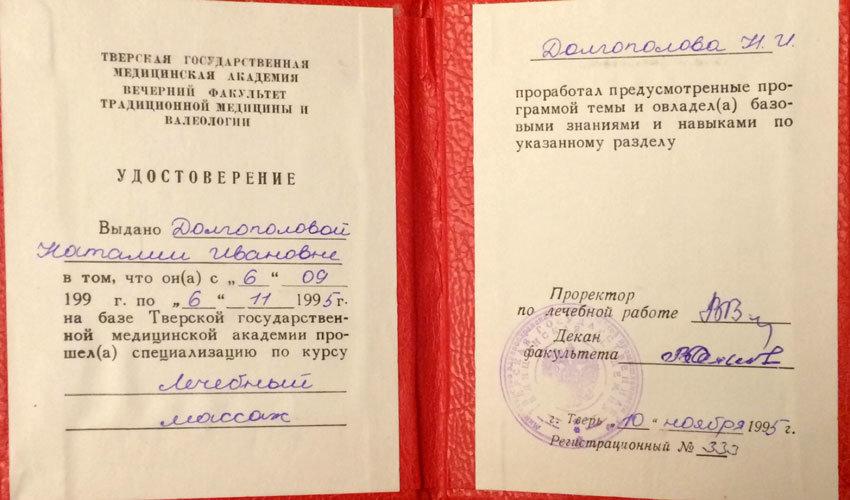 ТВЕРСКАЯ ГОСУДАРСТВЕННАЯ
МЕДИЦИНСКАЯ АКАДЕМИЯ
ВЕЧЕРНИЙ ФАКУЛЬТЕТ
ТРАДИЦИОННОЙ МЕДИЦИНЫ И
ВАЛЕОЛОГИИ
УДОСТОВЕРЕНИЕ
Выдано Долгополовой
Наталии Ивановне
в том, что он(а) с „6“ 09
199 г. по „6“ 11 1995г.
на базе Тверской государствен-
ной медицинской академии про-
шел(а) специализацию по курсу
Лечебный
массаж
Долгополова Н. И.
проработал предусмотренные про-
граммой темы и овладел(а) базо-
выми знаниями и навыками по
указанному разделу
Проректор
по лечебной работе
Декан
факультета
г. Тверь „10“ ноября 1995г.
Регистрационный № 333